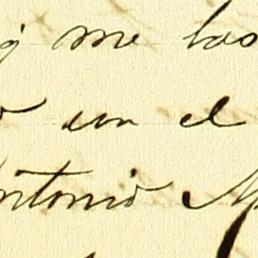 me las
con el
Antonio M